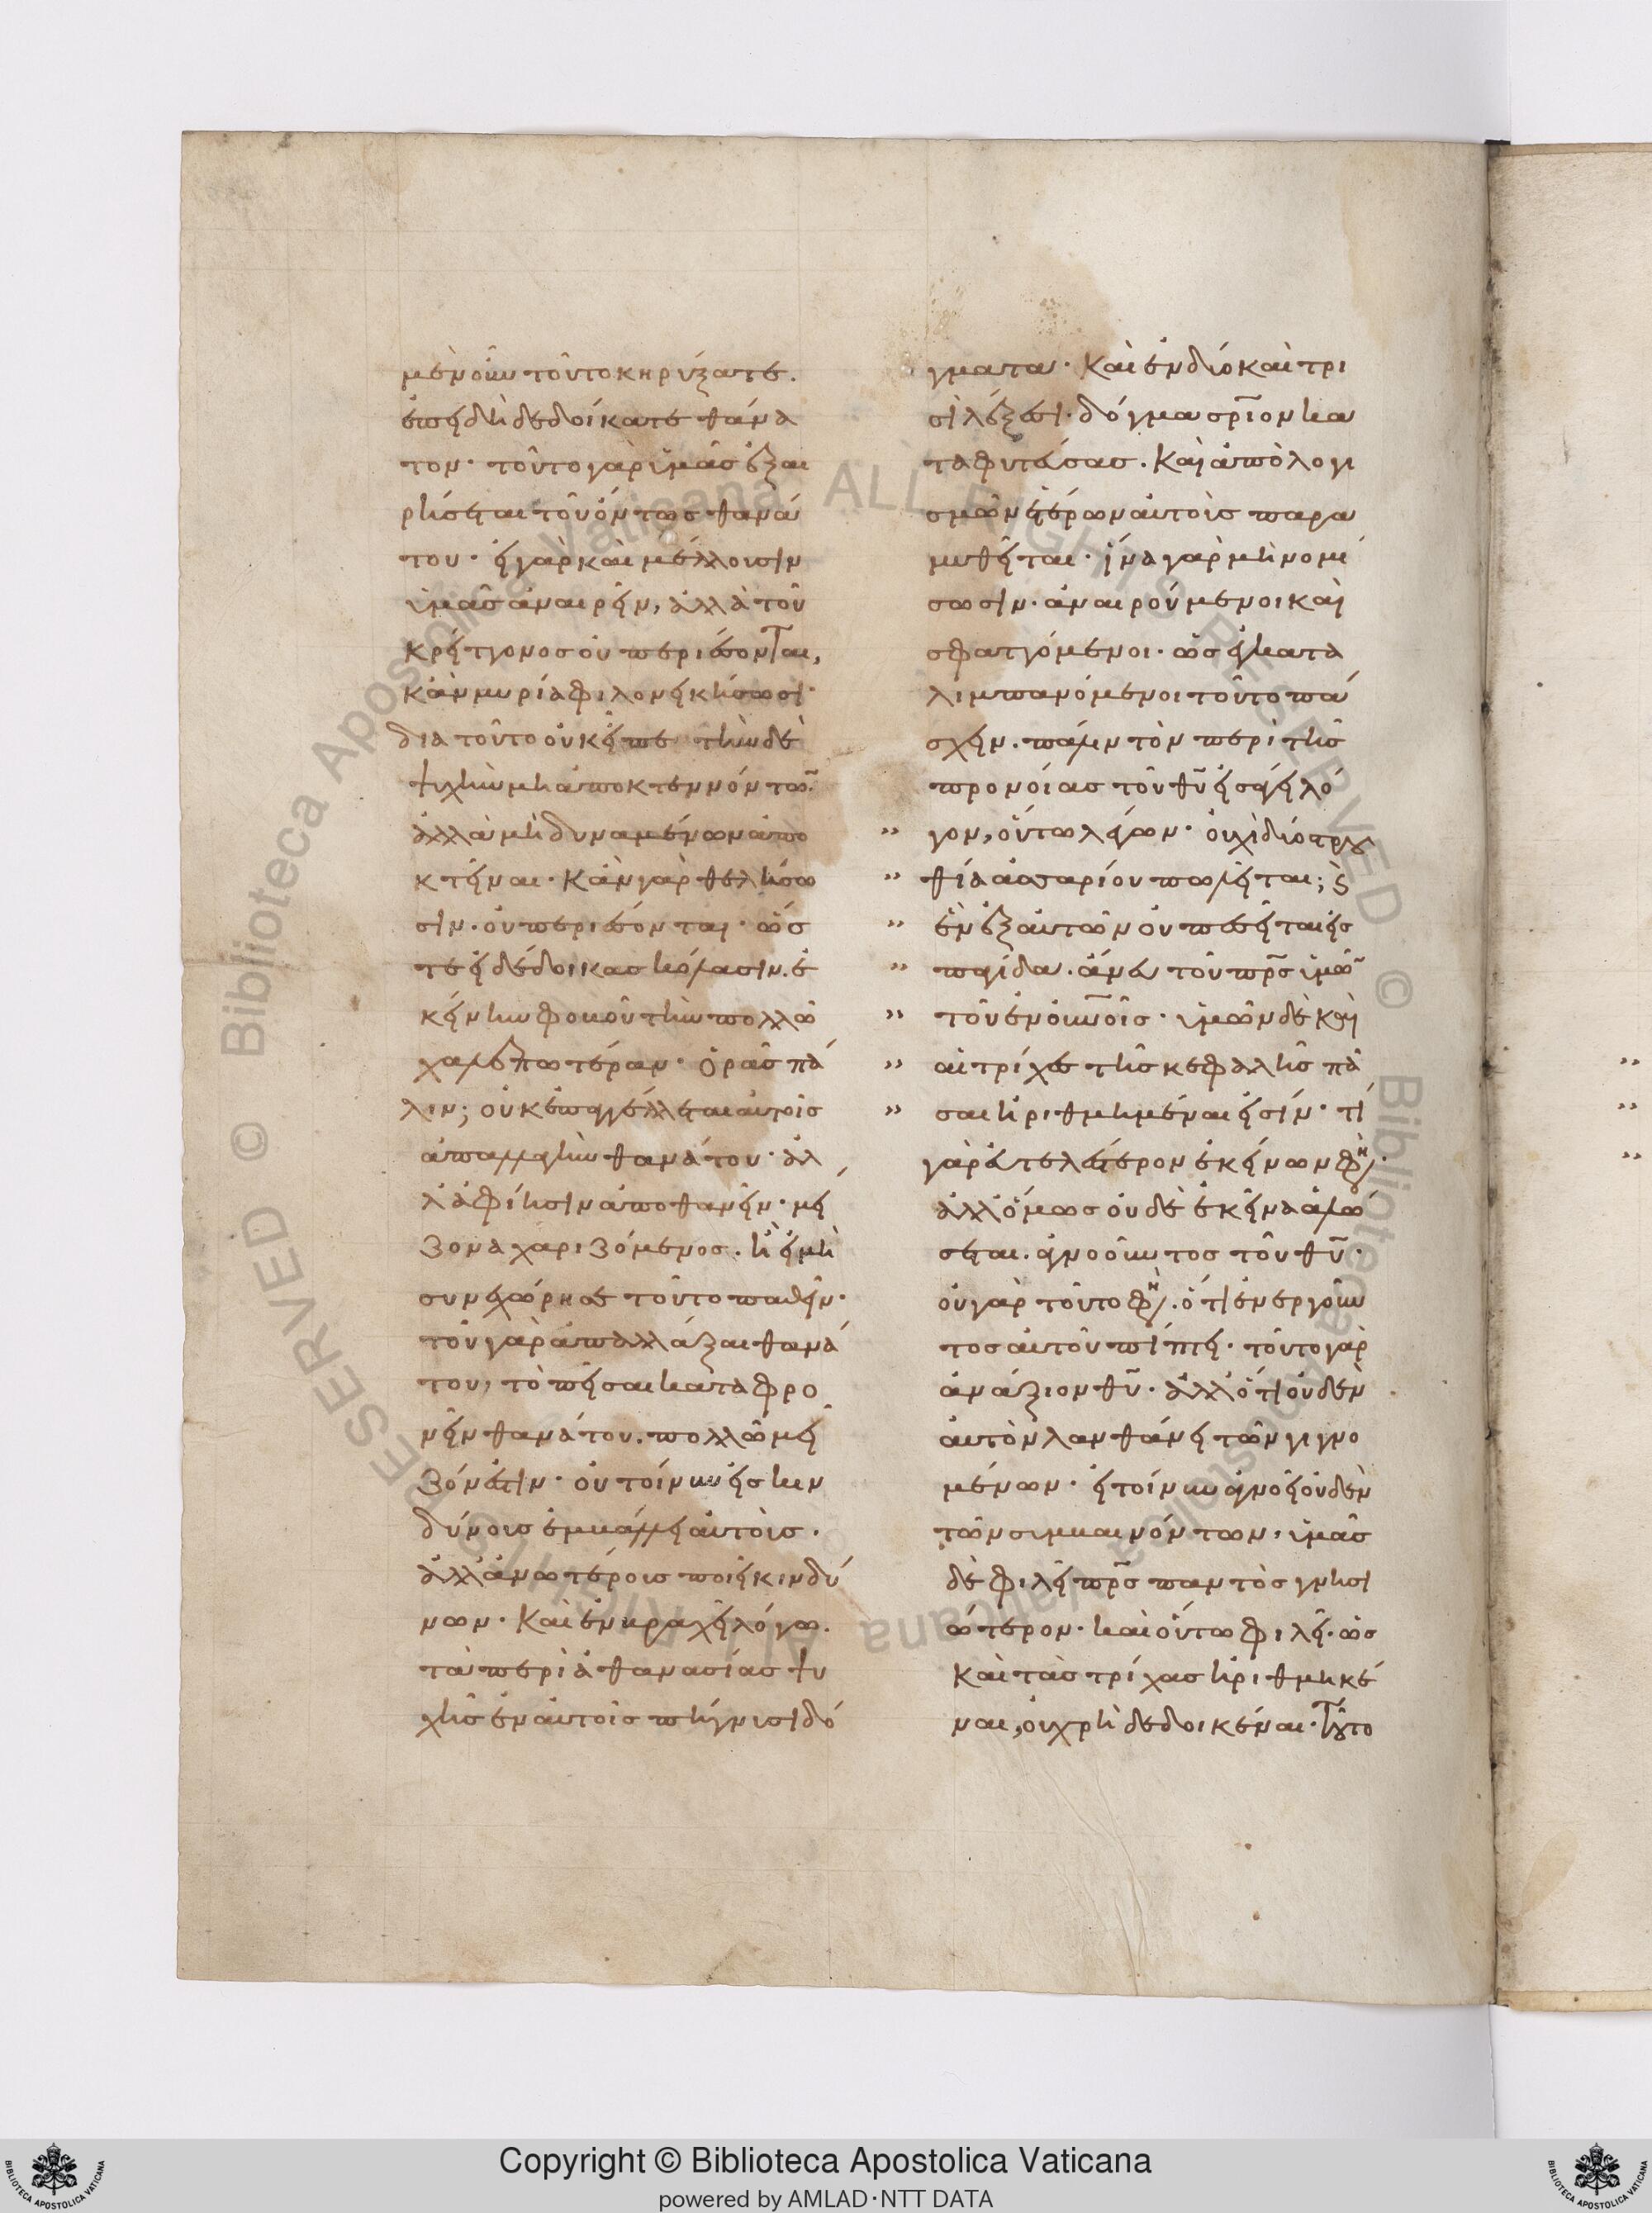 μὲν οὖν τοῦτο κηρύξατε.
ἐπειδὴ δεδοίκατε θάνα
τον· τοῦτο γὰρ ὑμᾶς ἐξαι
ρήσεται τοῦ ὄντως θανά
του· εἰ γὰρ καὶ μέλλουσιν
ὑμᾶς ἀναιρεῖν, ἀλλὰ τοῦ
κρείττονος οὐ περιέσονται,
κἂν μυρία φιλονεικήσωσι·
διὰ τοῦτο οὐκ εἶπε τὴν δὲ
ψυχὴν μὴ ἀποκτεννόντω̅.
ἀλλὰ μὴ δυναμένων ἀπο
κτεῖναι· κἂν γὰρ θελήσω
σιν. οὐ περιέσονται· ὥσ
τε εἰ δέδοικας κόλασιν. ἐ
κείνην φοβοῦ τὴν πολλῶ
χαλεπωτέραν· ὁρᾷς πά
λιν; οὐκ ἐπαγγέλλεται αὐτοῖς
ἀπαλλαγὴν θανάτου· ἀλ
λ' ἀφίησιν ἀποθανεῖν· μεί
ζονα χαριζόμενος. ἢ εἰ μὴ
συνεχώρησε τοῦτο παθεῖν·
τοῦ γὰρ ἀπαλλάξαι θανά
του, τὸ πεῖσαι καταφρο
νεῖν θανάτου. πολλῶ μεῖ
ζόν ἐστιν· οὐ τοίνυν εἰς κιν
δύνους ἐμβάλλει αὐτοὺς.
ἀλλ' ἀνωτέρους ποιεῖ κινδύ
νων· καὶ ἐν βραχεῖ λόγω.
τὰ περὶ ἀθανασίας ψυ
χῆς ἐν αὐτοῖς πήγνυσι δό
γματα· καὶ ἐν δύο καὶ τρι
σὶ λέξεσι· δόγμα σρ̅ιον κα
ταφυτεύσας. καὶ ἀπὸ λογι
σμῶν ἑτέρων αὐτοὺς παρα
μυθεῖται· ἵνα γὰρ μὴ νομί
σωσιν· ἀναιρούμενοι καὶ
σφαττόμενοι· ὡς ἐγκατα
λιμπανόμενοι τοῦτο πά
σχειν. πάλιν τὸν περὶ τῆς
προνοίας τοῦ θυ̅ εἰσάγει λό
γον, οὕτω λέγων· οὐχὶ δύο στρου
θία ἀσσαρίου πωλεῖται; ϛ
ἓν ἐξ αὐτῶν οὐ πεσεῖται εἰς
παγίδα. ἄνευ τοῦ πρ̅ς ὑμῶ̅
τοῦ ἐν οὐνο̅ῖς· ὑμῶν δὲ καὶ
αἱ τρίχες τῆς κεφαλῆς πᾶ
σαι ἠριθμημέναι εἰσίν· τί
γὰρ εὐτελέστερον ἐκείνων φη.
ἀλλ' ὅμως οὐδὲ ἐκεῖνα ἁλώ
σεται. ἀγνοοῦντος τοῦ θυ̅·
οὐ γὰρ τοῦτο φη. ὅτι ἐνεργοῦν
τος αὐτοῦ πίπτει· τοῦτο γὰρ
ἀνάξιον θυ̅· ἀλλ' ὅτι οὐδὲν
αὐτὸν λανθάνει τῶν γιγνο
μένων· εἰ τοίνυν ἀγνοεῖ οὐδὲν
τῶν συμβαινόντων, ὑμᾶς
δὲ φιλεῖ πρ̅ς παντὸς γνησι
ώτερον· καὶ οὕτω φιλεῖ. ὡς
καὶ τὰς τρίχας ἠριθμηκέ
ναι, οὐ χρὴ δεδοικέναι· τοῦτο